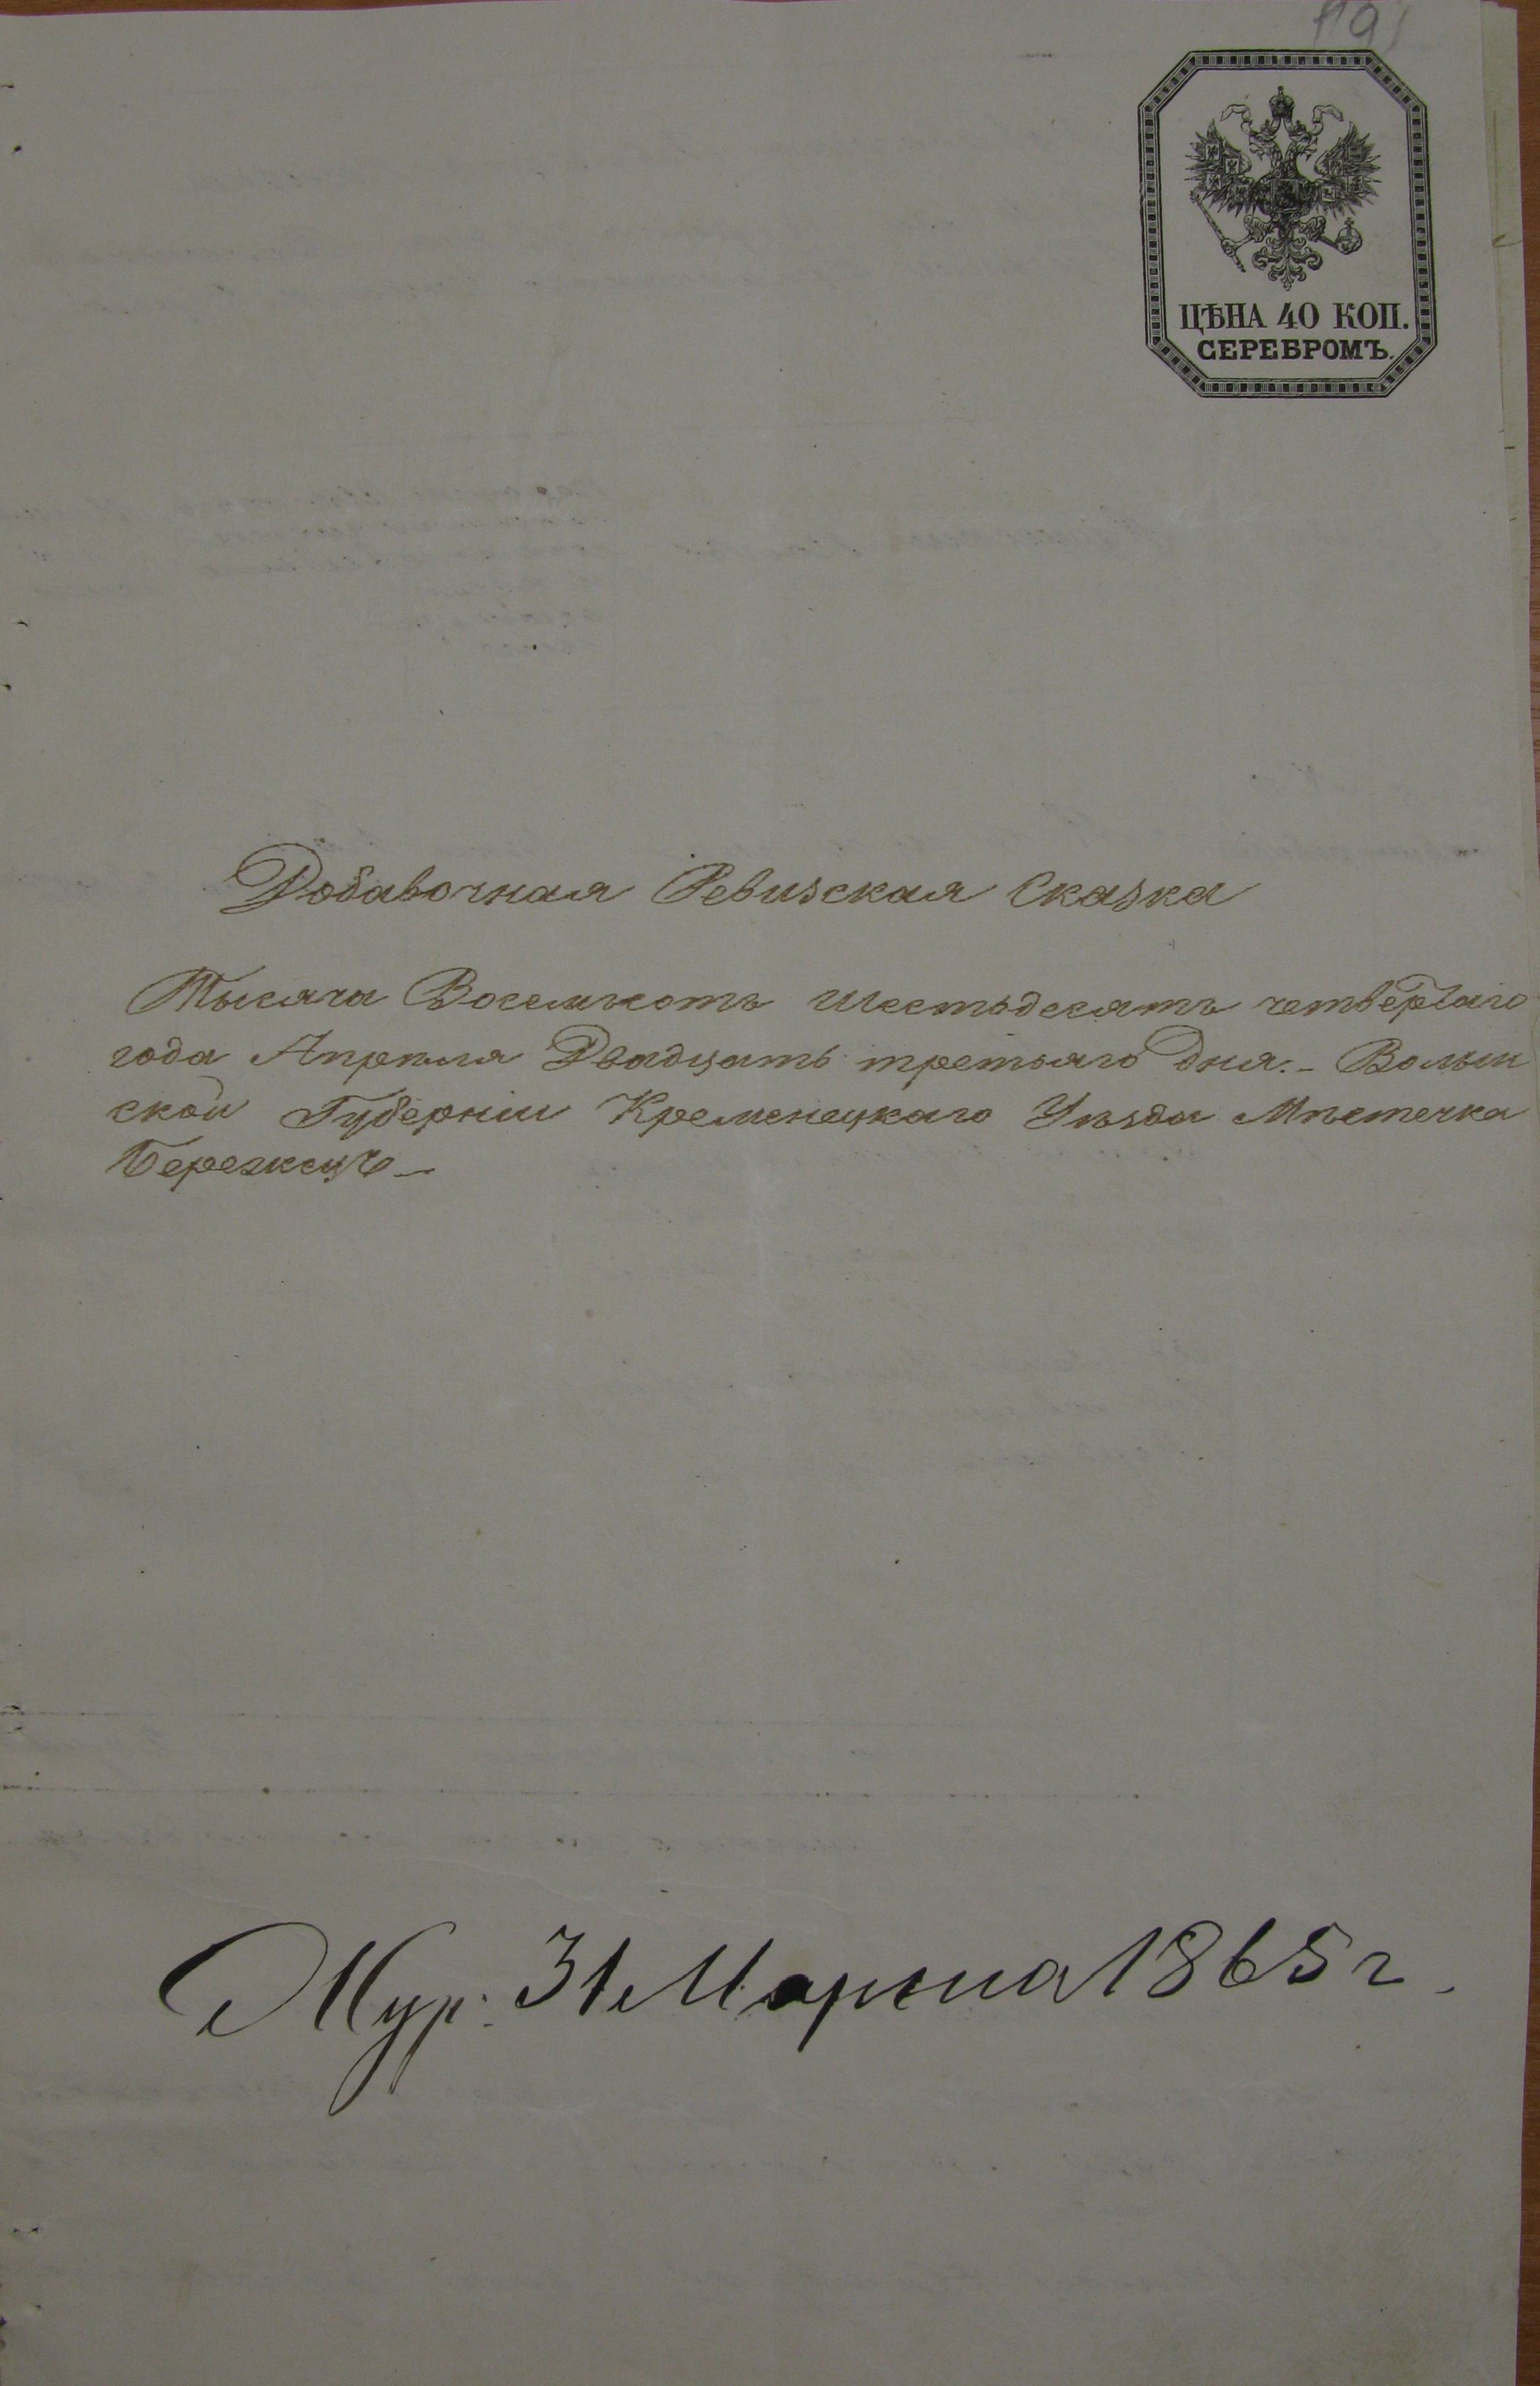 ЦѢНА 40 КОП.
СЕРЕБРОМЪ.
Добавочная Ревизская Сказка
Тысяча Восемьсотъ шестьдесятъ четвертаго
года Апрѣля Двадцать третьяго дня. – Волын
ской Губерніи Кременецкаго Уѣзда Мѣстечка
Бережецъ –
Жур. 31 Марта 1865 г.